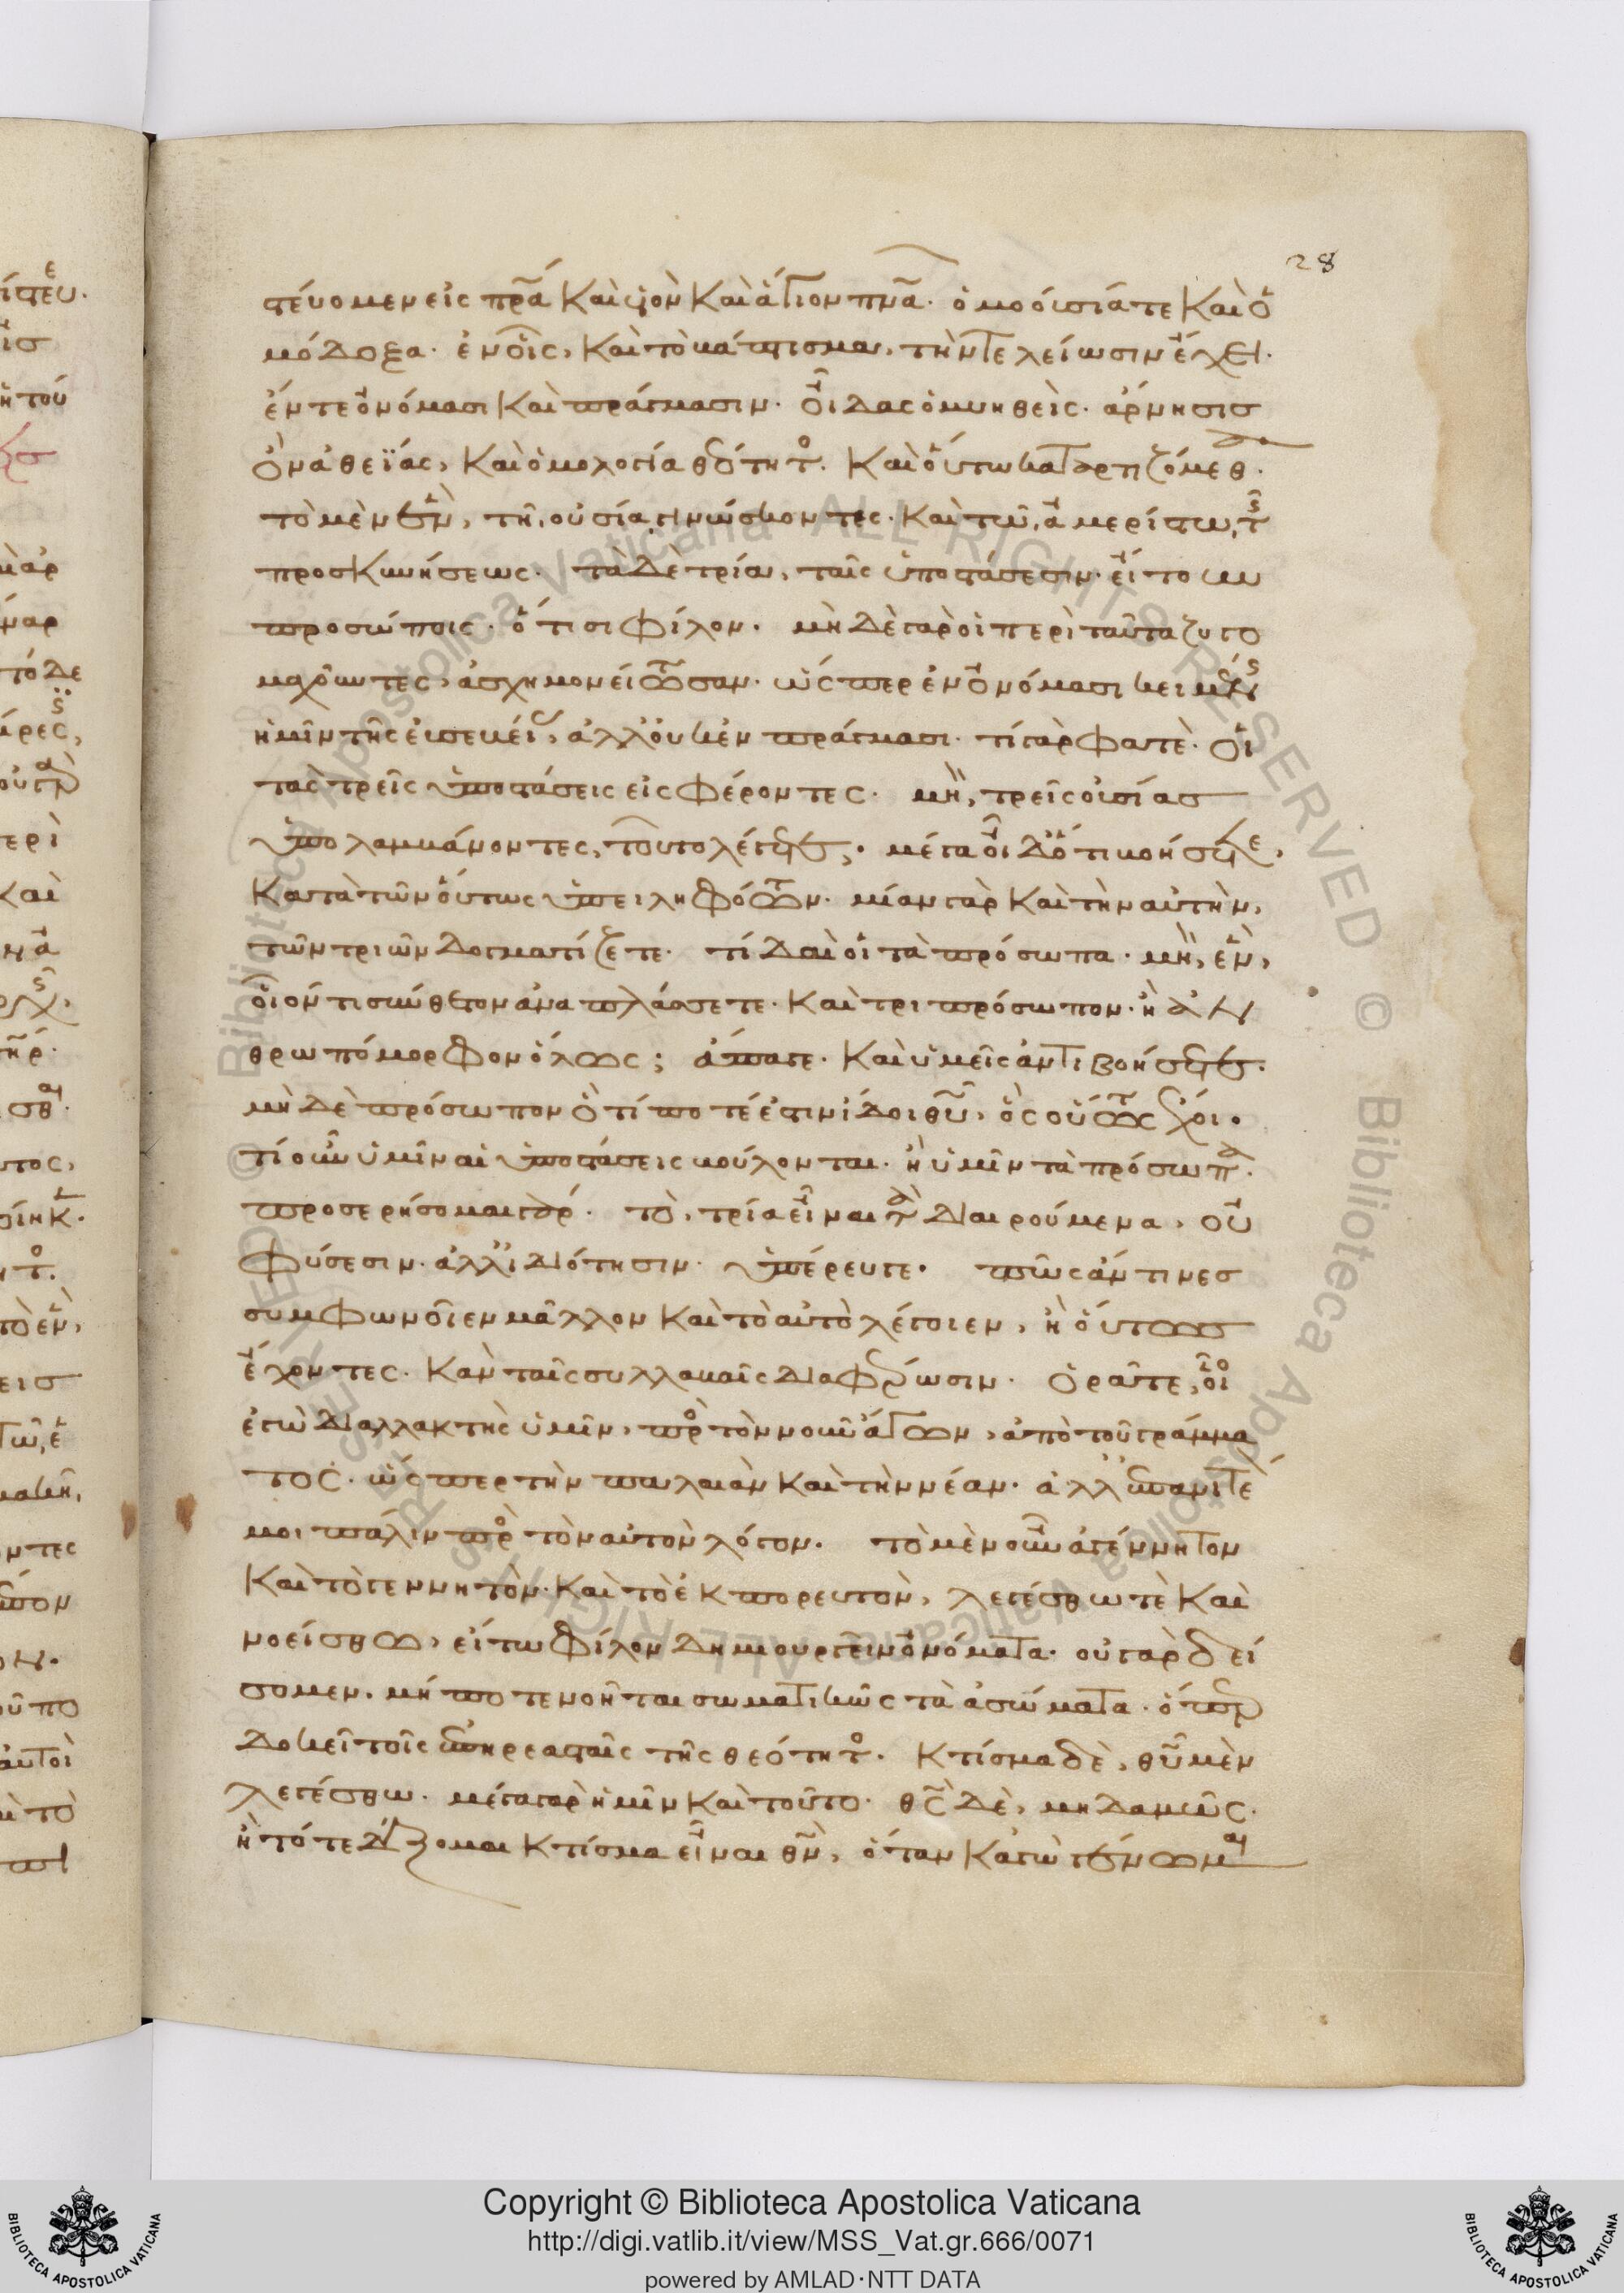 28
στεύομεν εἰς πρα καὶ υἱὸν καὶ ἅγιον πνα. ὁμοούσιά τε καὶ ὁ
μόδοξα. ἐν οἷς, καὶ τὸ βάπτισμα, τὴν τελείωσιν ἔχει.
ἔν τε ὀνόμασι καὶ πράγμασιν. οἶδας ὁ μυηθείς. ἄρνησις
ὂν ἀθεΐας, καὶ ὁμολογία θεότητος. καὶ οὕτω καταρτιζόμεθα.
τὸ μὲν ἓν, τῆ οὐσία γινώσκοντες. καὶ τῶ ἀμερίστω τῆς
προσκυνήσεως. τὰ δὲ τρία, ταῖς ὑποστάσεσιν. εἴτουν
προσώποις. ὅ τισι φίλον. μὴ δὲ γὰρ οἱ περὶ ταῦτα ζυγο
μαχοῦντες, ἀσχημονείτωσαν. ὥσπερ ἐν ὀνόμασι κειμένης
ἡμῖν τῆς εὐσεβείας, ἀλλ' οὐκ ἐν πράγμασι. τί γάρ φατε. οἱ
τὰς τρεῖς ὑποστάσεις εἰσφέροντες. μὴ, τρεῖς οὐσίας
ὑπολαμβάνοντες, τοῦτο λέγετε; μέγα οἶδ' ὅτι βοήσετε,
κατὰ τῶν οὕτως ὑπειληφότων. μίαν γὰρ καὶ τὴν αὐτὴν,
τῶν τριῶν δογματίζετε. τί δαὶ οἱ τὰ πρόσωπα. μὴ, ἓν,
οἷόν τι σύνθετον ἀναπλάσσετε. καὶ τριπρόσωπον. ἢ ἀν
θρωπόμορφον ὅλως; ἄπαγε. καὶ ὑμεῖς ἀντιβοήσετε.
μὴ δὲ πρόσωπον ὅ τί ποτέ ἐστιν ἴδοι θυ, ὃς οὕτως ἔχοι.
τί οὖν ὑμῖν αἱ ὑποστάσεις βούλονται. ἢ ὑμῖν τὰ πρόσωπα.
προσερήσομαι γάρ. τὸ, τρία εἶναι τὰ διαιρούμενα, οὐ
φύσεσιν. ἀλλ' ἰδιότησιν. ὑπέρευγε. πῶς ἄν τινες
συμφωνοῖεν μᾶλλον καὶ τὸ αὐτὸ λέγοιεν, ἢ οὕτως
ἔχοντες. κἂν ταῖς συλλαβαῖς διαφέρωσιν. ὁρᾶτε, οἷος
ἐγὼ διαλλακτὴς ὑμῖν, πρὸς τὸν νοῦν ἄγων, ἀπὸ τοῦ γράμμα
τος. ὥσπερ τὴν παλαιὰν καὶ τὴν νέαν. ἀλλ' ἐπανίτε
μοι πάλιν πρὸς τὸν αὐτὸν λόγον. τὸ μὲν οὖν ἀγέννητον
καὶ τὸ γεννητὸν. καὶ τὸ ἐκπορευτὸν, λεγέσθω τὲ καὶ
νοείσθω, εἴ τω φίλον δημιουργεῖν ὀνόματα. οὐ γὰρ δεί
σομεν. μήποτε νοῆται σωματικῶς τὰ ἀσώματα. ὅπερ
δοκεῖ τοῖς ἐπηρεασταῖς τῆς θεότητος. κτίσμα δὲ, θυ μὲν
λεγέσθω. μέγα γὰρ ἡμῖν καὶ τοῦτο. θς δὲ, μηδαμῶς.
ἢ τότε δέξομαι κτίσμα εἶναι θν, ὅταν κἀγὼ γένωμαι
Copyright © Biblioteca Apostolica Vaticana
http://digi.vatlib.it/view/MSS_Vat.gr.666/0071
powered by AMLAD·NTT DATA